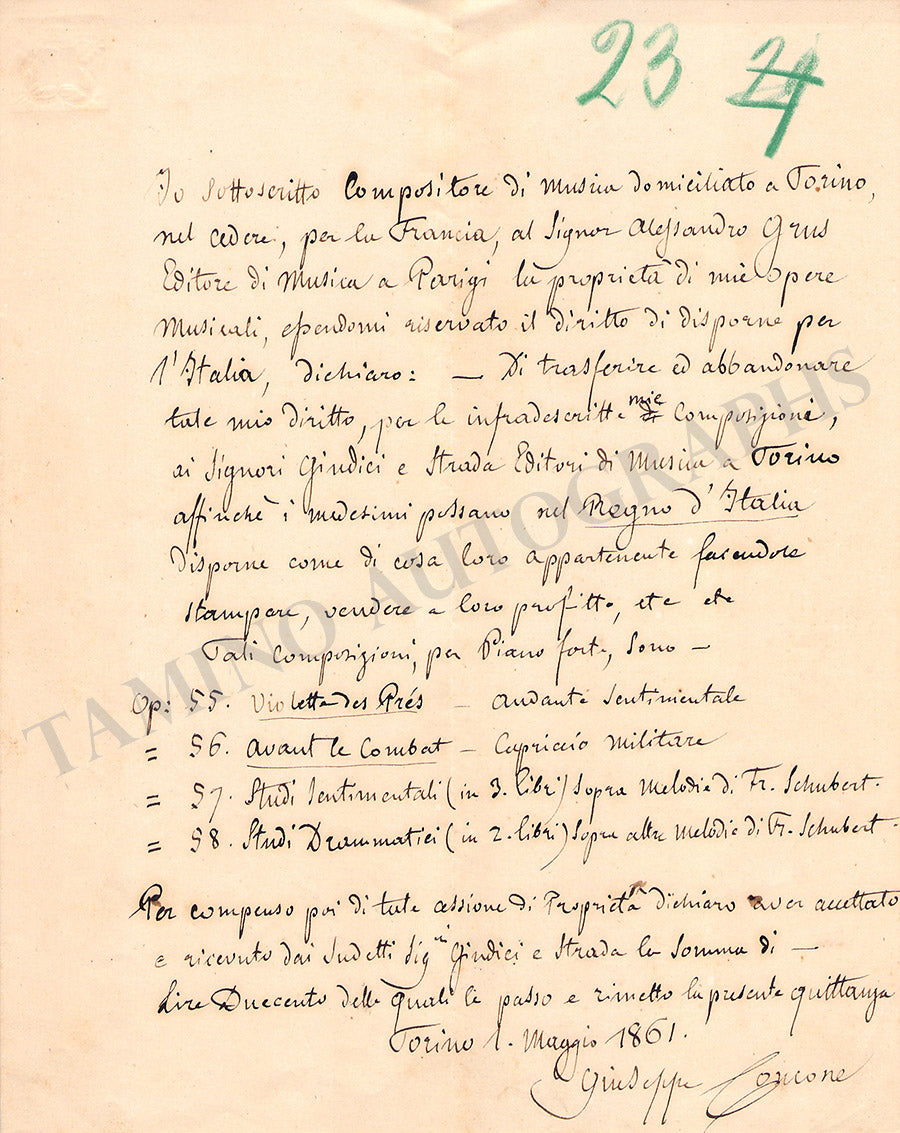 23 24
Io sottoscritto Compositore di Musica domiciliato a Torino,
nel cedere, per la Francia, al Signor Alessandro Grus
Editore di Musica a Parigi la proprietà di mie opere
Musicali, essendomi riservato il diritto di disporne per
l'Italia, dichiaro: — Di trasferire ed abbandonare
tale mio diritto, per le infradescritte mie Composizioni,
ai Signori Giudici e Strada Editori di Musica a Torino
affinchè i medesimi possano nel Regno d'Italia
disporne come di cosa loro appartenente facendole
stampare, vendere a loro profitto, etc etc
Tali Composizioni, per Piano forte, sono —
Op: 55. Violette des Prés — Andante Sentimentale
= 56. Avant le Combat — Capriccio Militare
= 57. Studi Sentimentali (in 3. libri) Sopra Melodie di Fr. Schubert.
= 58. Studi Drammatici (in 2. libri) Sopra altre Melodie di Fr. Schubert.
Per compenso poi di tale cessione di Proprietà dichiaro aver accettato
e ricevuto dai Sudetti Sigri Giudici e Strada la Somma di —
Lire Duecento delle quali le passo e rimetto la presente quittanza
Torino 1. Maggio 1861.
Giuseppe Concone
TAMINO AUTOGRAPHS